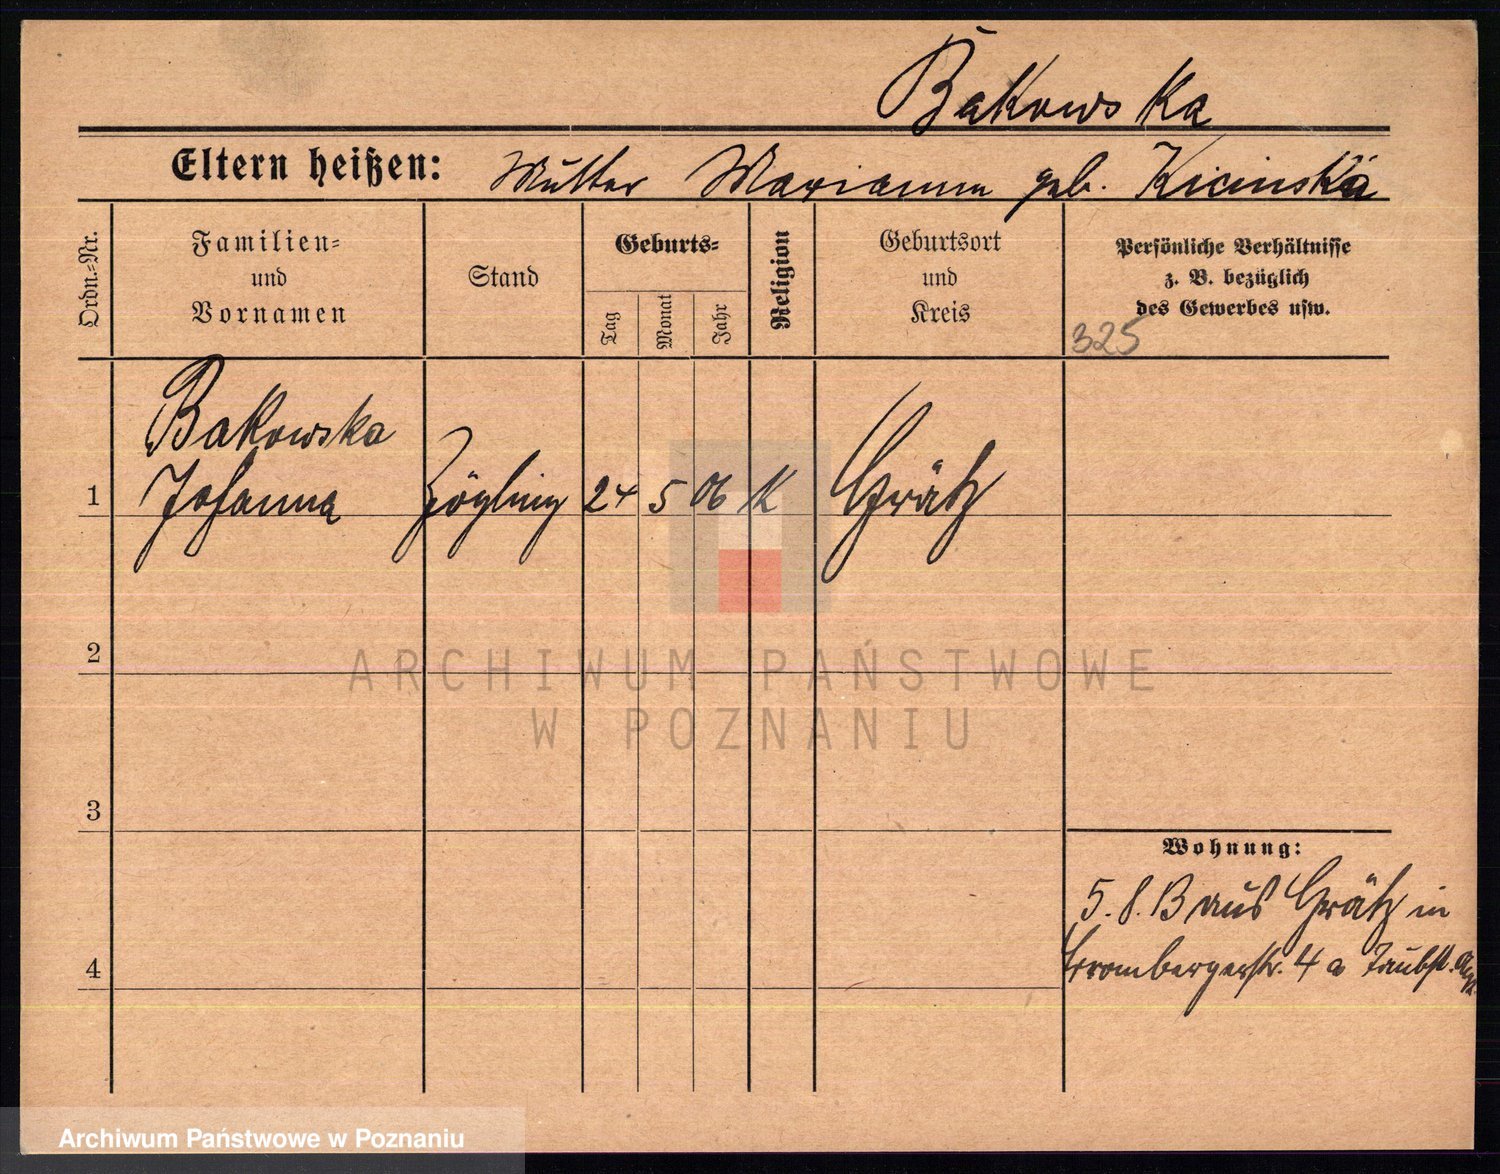 Bakowska
Eltern heißen: Mutter Marianna geb. Kicinska
Ordn.=Nr.
Familien=
und
Vornamen
Stand
Geburts=
Tag
Monat
Jahr
Religion
Geburtsort
und
Kreis
Persönliche Verhältnisse
z. B. bezüglich
des Gewerbes usw.
325
Bakowska
1 Johanna Zögling 24 5 06 K Grätz
2
3
4
Wohnung:
5. 8. 13 aus Grätz in
Brombergerstr. 4 a Taubst.
ARCHIWUM PAŃSTWOWE
W POZNANIU
Archiwum Państwowe w Poznaniu